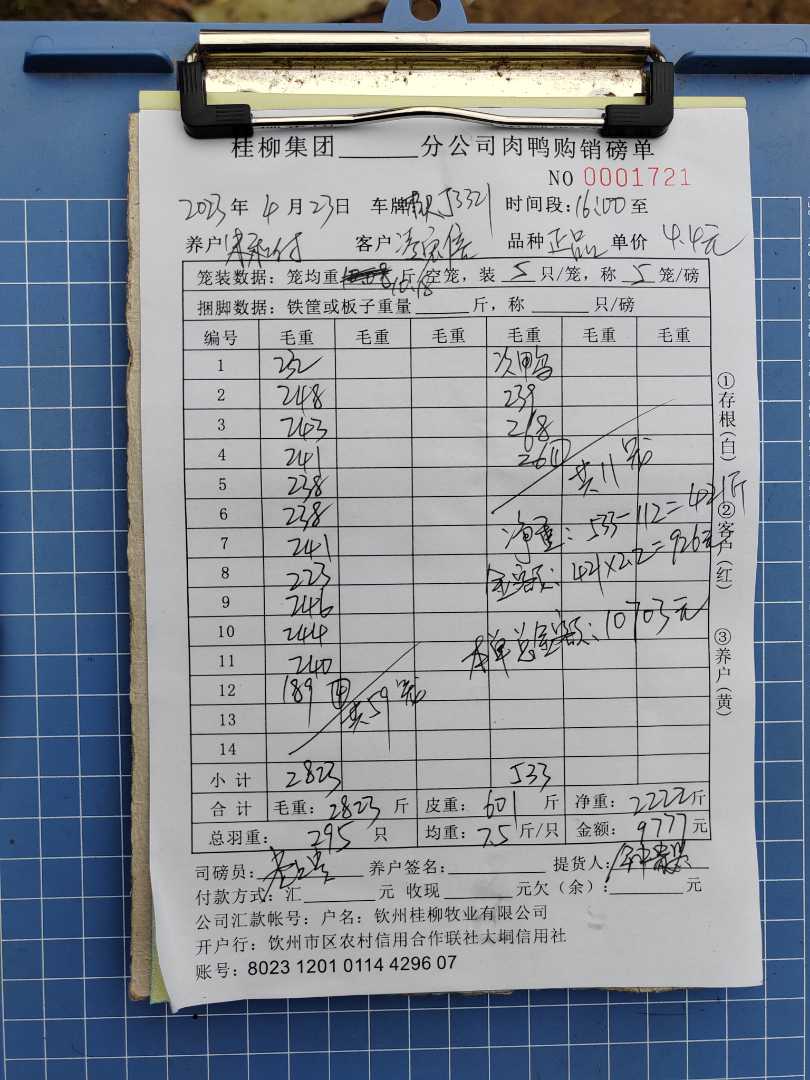 桂柳集团______分公司肉鸭购销磅单
NO 0001721
2023年4月23日 车牌 J3321 时间段:16:00至
养户 客户 品种 正品 单价 4.4元
笼装数据:笼均重 10.18 斤/空笼,装 5 只/笼,称 5 笼/磅
捆脚数据:铁筐或板子重量______斤,称______只/磅
编号 毛重 毛重 毛重 毛重 毛重 毛重
1 232 次鸭
2 248 239
3 243 268
4 241 26① 共11笼
5 238
6 238 净重:533-112=421斤
7 241
8 223 金额:421×2.2=926元
9 246
10 244 本单总金额:10703元
11 240
12 189④ 共59笼
13
14
小计 2823 533
合计 毛重:2823斤 皮重:601斤 净重:2222斤
总羽重:295只 均重:7.5斤/只 金额:9777元
司磅员: 养户签名:______ 提货人:
付款方式:汇______元 收现______元欠(余):______元
公司汇款帐号:户名:钦州桂柳牧业有限公司
开户行:钦州市区农村信用合作联社大垌信用社
账号:8023 1201 0114 4296 07
①存根(白)
②客户(红)
③养户(黄)